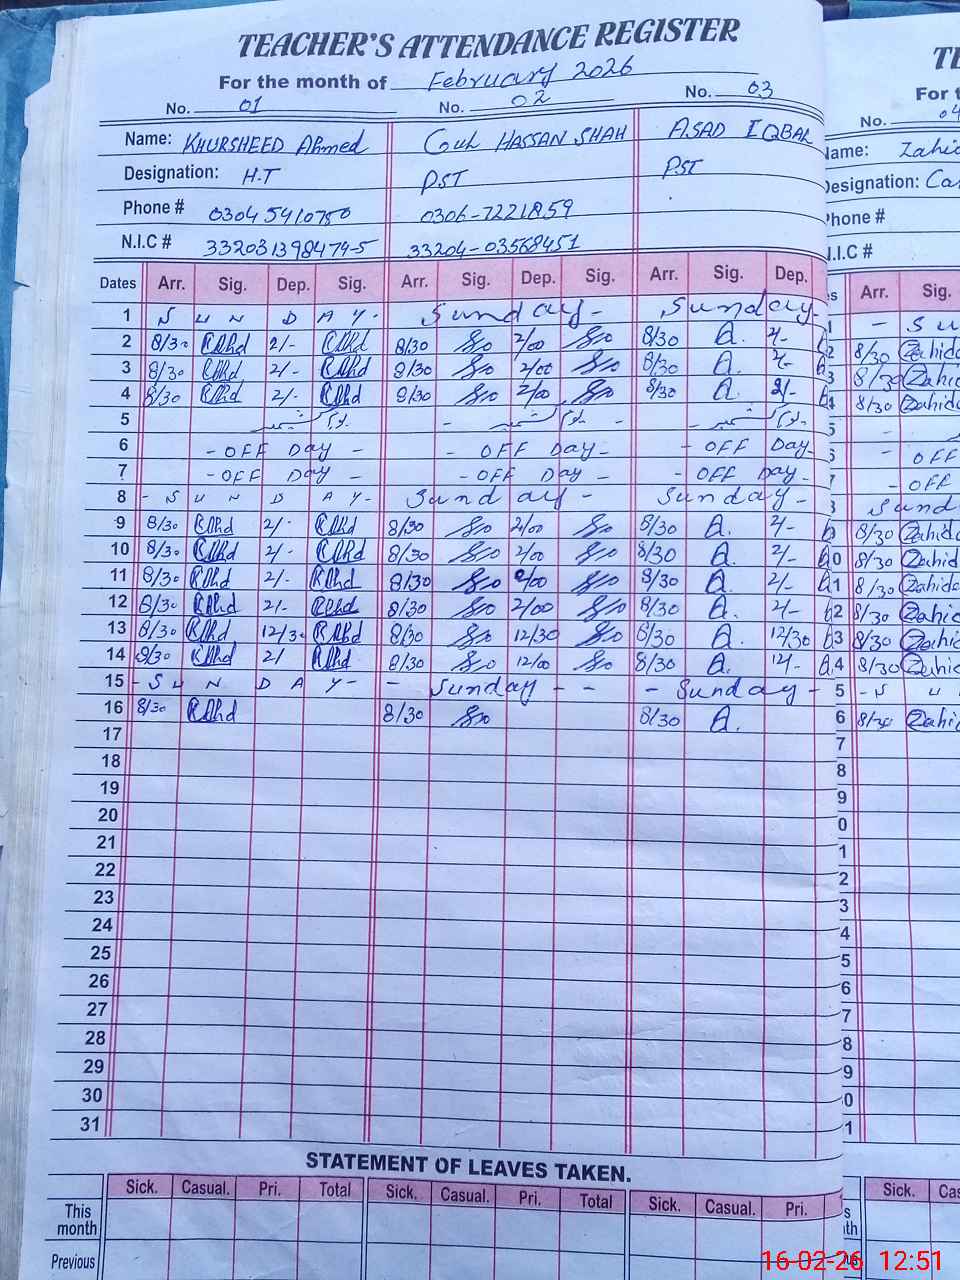 TEACHER'S ATTENDANCE REGISTER
For the month of February 2026
No. 01 No. 02 No. 03
Name: KHURSHEED Ahmed Gul HASSAN SHAH ASAD IQBAL
Designation: H.T PST PST
Phone # 0304 5410750 0306-7221859
N.I.C # 3320313984794-5 33204-03568451
Dates Arr. Sig. Dep. Sig. Arr. Sig. Dep. Sig. Arr. Sig. Dep.
1 S U N D A Y - Sunday - Sunday -
2 8/30 2/- 8/30 2/00 8/30 A. 2/-
3 8/30 2/- 8/30 2/00 8/30 A. 2/-
4 8/30 2/- 8/30 2/00 8/30 A. 2/-
5
6 - OFF Day - - OFF Day - - OFF Day -
7 - OFF Day - - OFF Day - - OFF Day -
8 - S U N D A Y - Sunday - Sunday -
9 8/30 2/- 8/30 2/00 8/30 A. 2/-
10 8/30 2/- 8/30 2/00 8/30 A. 2/-
11 8/30 2/- 8/30 2/00 8/30 A. 2/-
12 8/30 2/- 8/30 2/00 8/30 A. 2/-
13 8/30 12/30 8/30 12/30 8/30 A. 12/30
14 8/30 2/ 8/30 12/00 8/30 A. 12/-
15 - S U N D A Y - - Sunday - - - Sunday -
16 8/30 8/30 8/30 A.
17
18
19
20
21
22
23
24
25
26
27
28
29
30
31
STATEMENT OF LEAVES TAKEN.
Sick. Casual. Pri. Total Sick. Casual. Pri. Total Sick. Casual. Pri.
This month
Previous
No. 04
Name: Zahid
Designation:
Phone #
N.I.C #
Arr. Sig.
- S U
8/30 Zahid
8/30 Zahid
8/30 Zahid
- OFF
- OFF
Sund
8/30 Zahid
8/30 Zahid
8/30 Zahid
8/30 Zahid
8/30 Zahid
8/30 Zahid
- S U
8/30 Zahid
Sick.
16-02-26 12:51